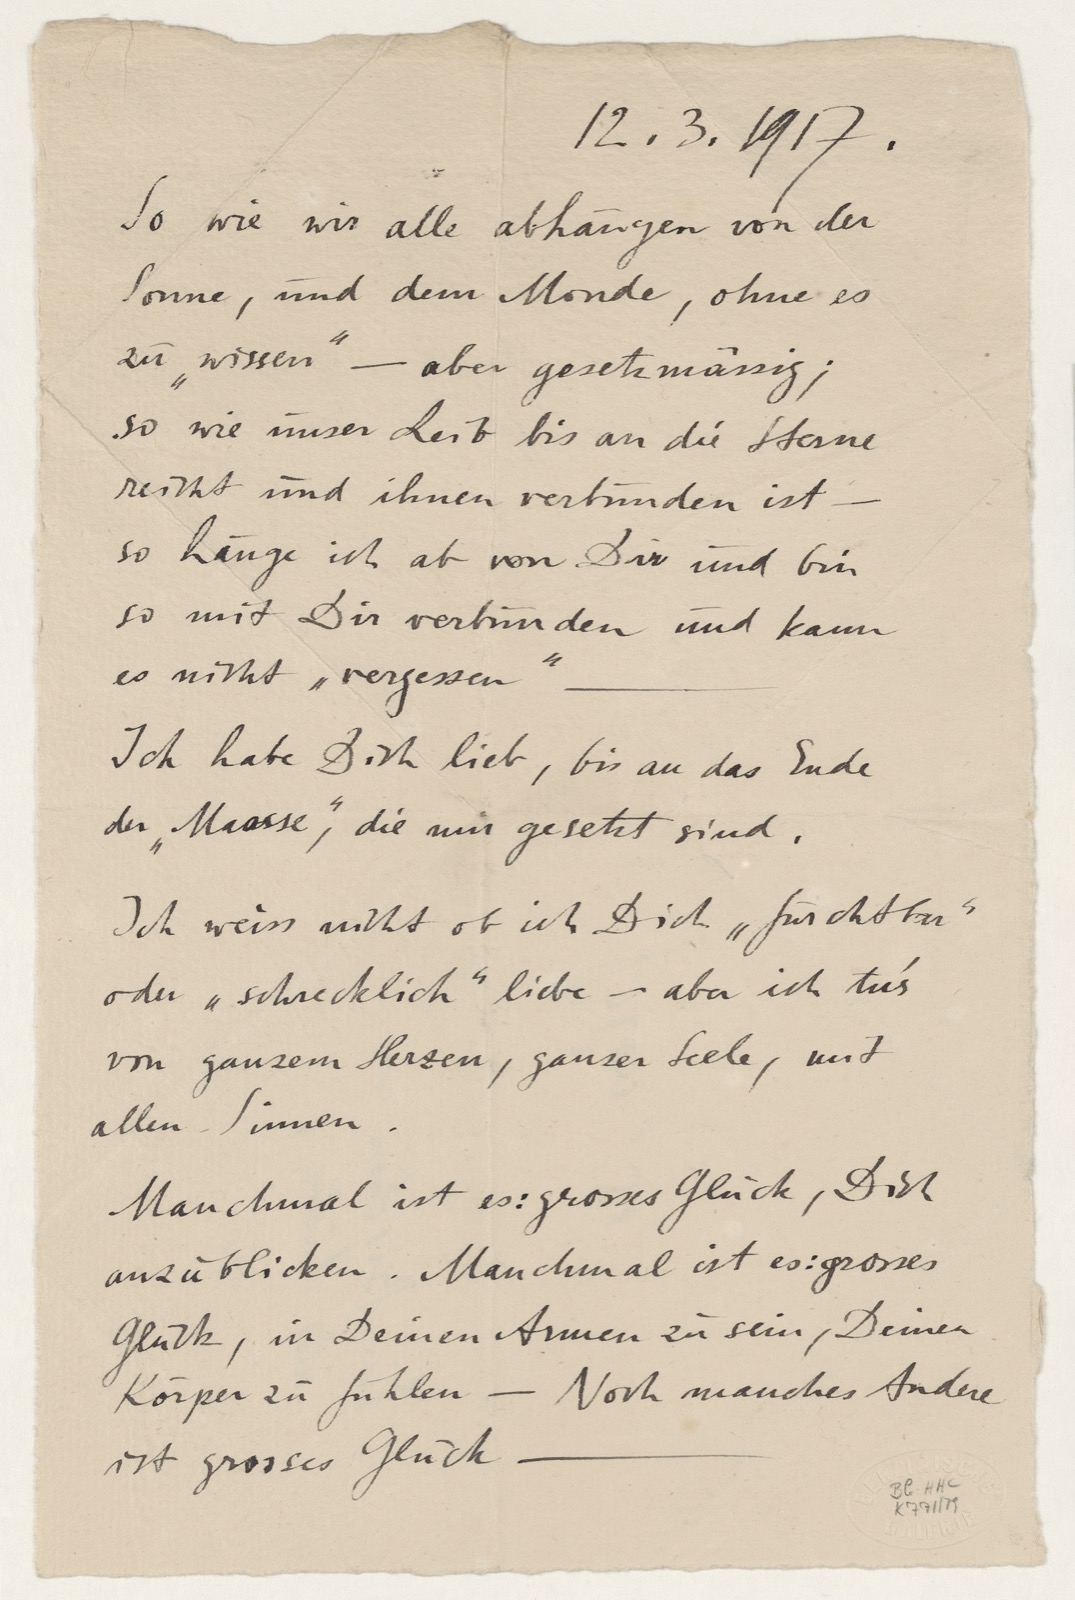 12.3.1917.
So wie wir alle abhängen von der
Sonne, und dem Monde, ohne es
zu „wissen“ — aber gesetzmässig;
so wie unser Leib bis an die Sterne
reicht und ihnen verbunden ist —
so hänge ich ab von Dir und bin
so mit Dir verbunden und kann
es nicht „vergessen“ —
Ich habe Dich lieb, bis an das Ende
der „Maasse“, die mir gesetzt sind.
Ich weiss nicht ob ich Dich „furchtbar“
oder „schrecklich“ liebe — aber ich tu's
von ganzem Herzen, ganzer Seele, mit
allen Sinnen.
Manchmal ist es: grosses Glück, Dich
anzublicken. Manchmal ist es: grosses
Glück, in Deinen Armen zu sein, Deinen
Körper zu fühlen — Noch manches Andere
ist grosses Glück —
BG HHC
K771/79